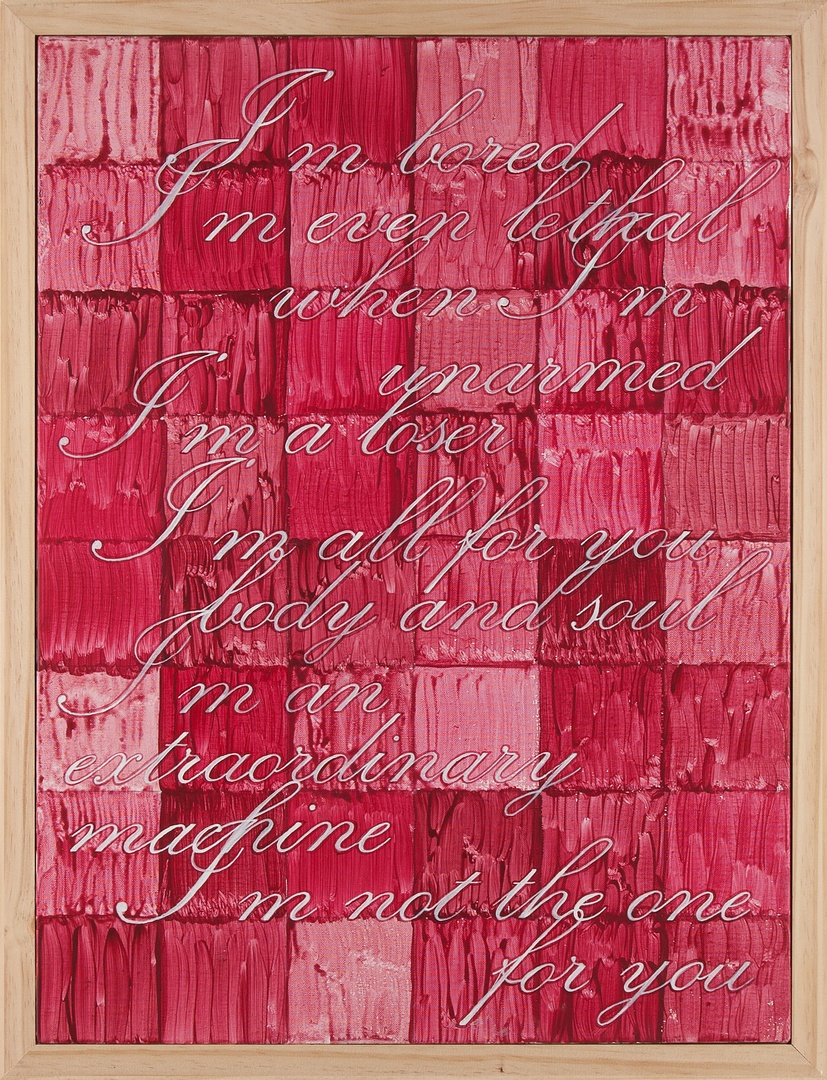 I'm bored
I'm even lethal
when I'm
unarmed
I'm a loser
I'm all for you
body and soul
I'm an
extraordinary
machine
I'm not the one
for you